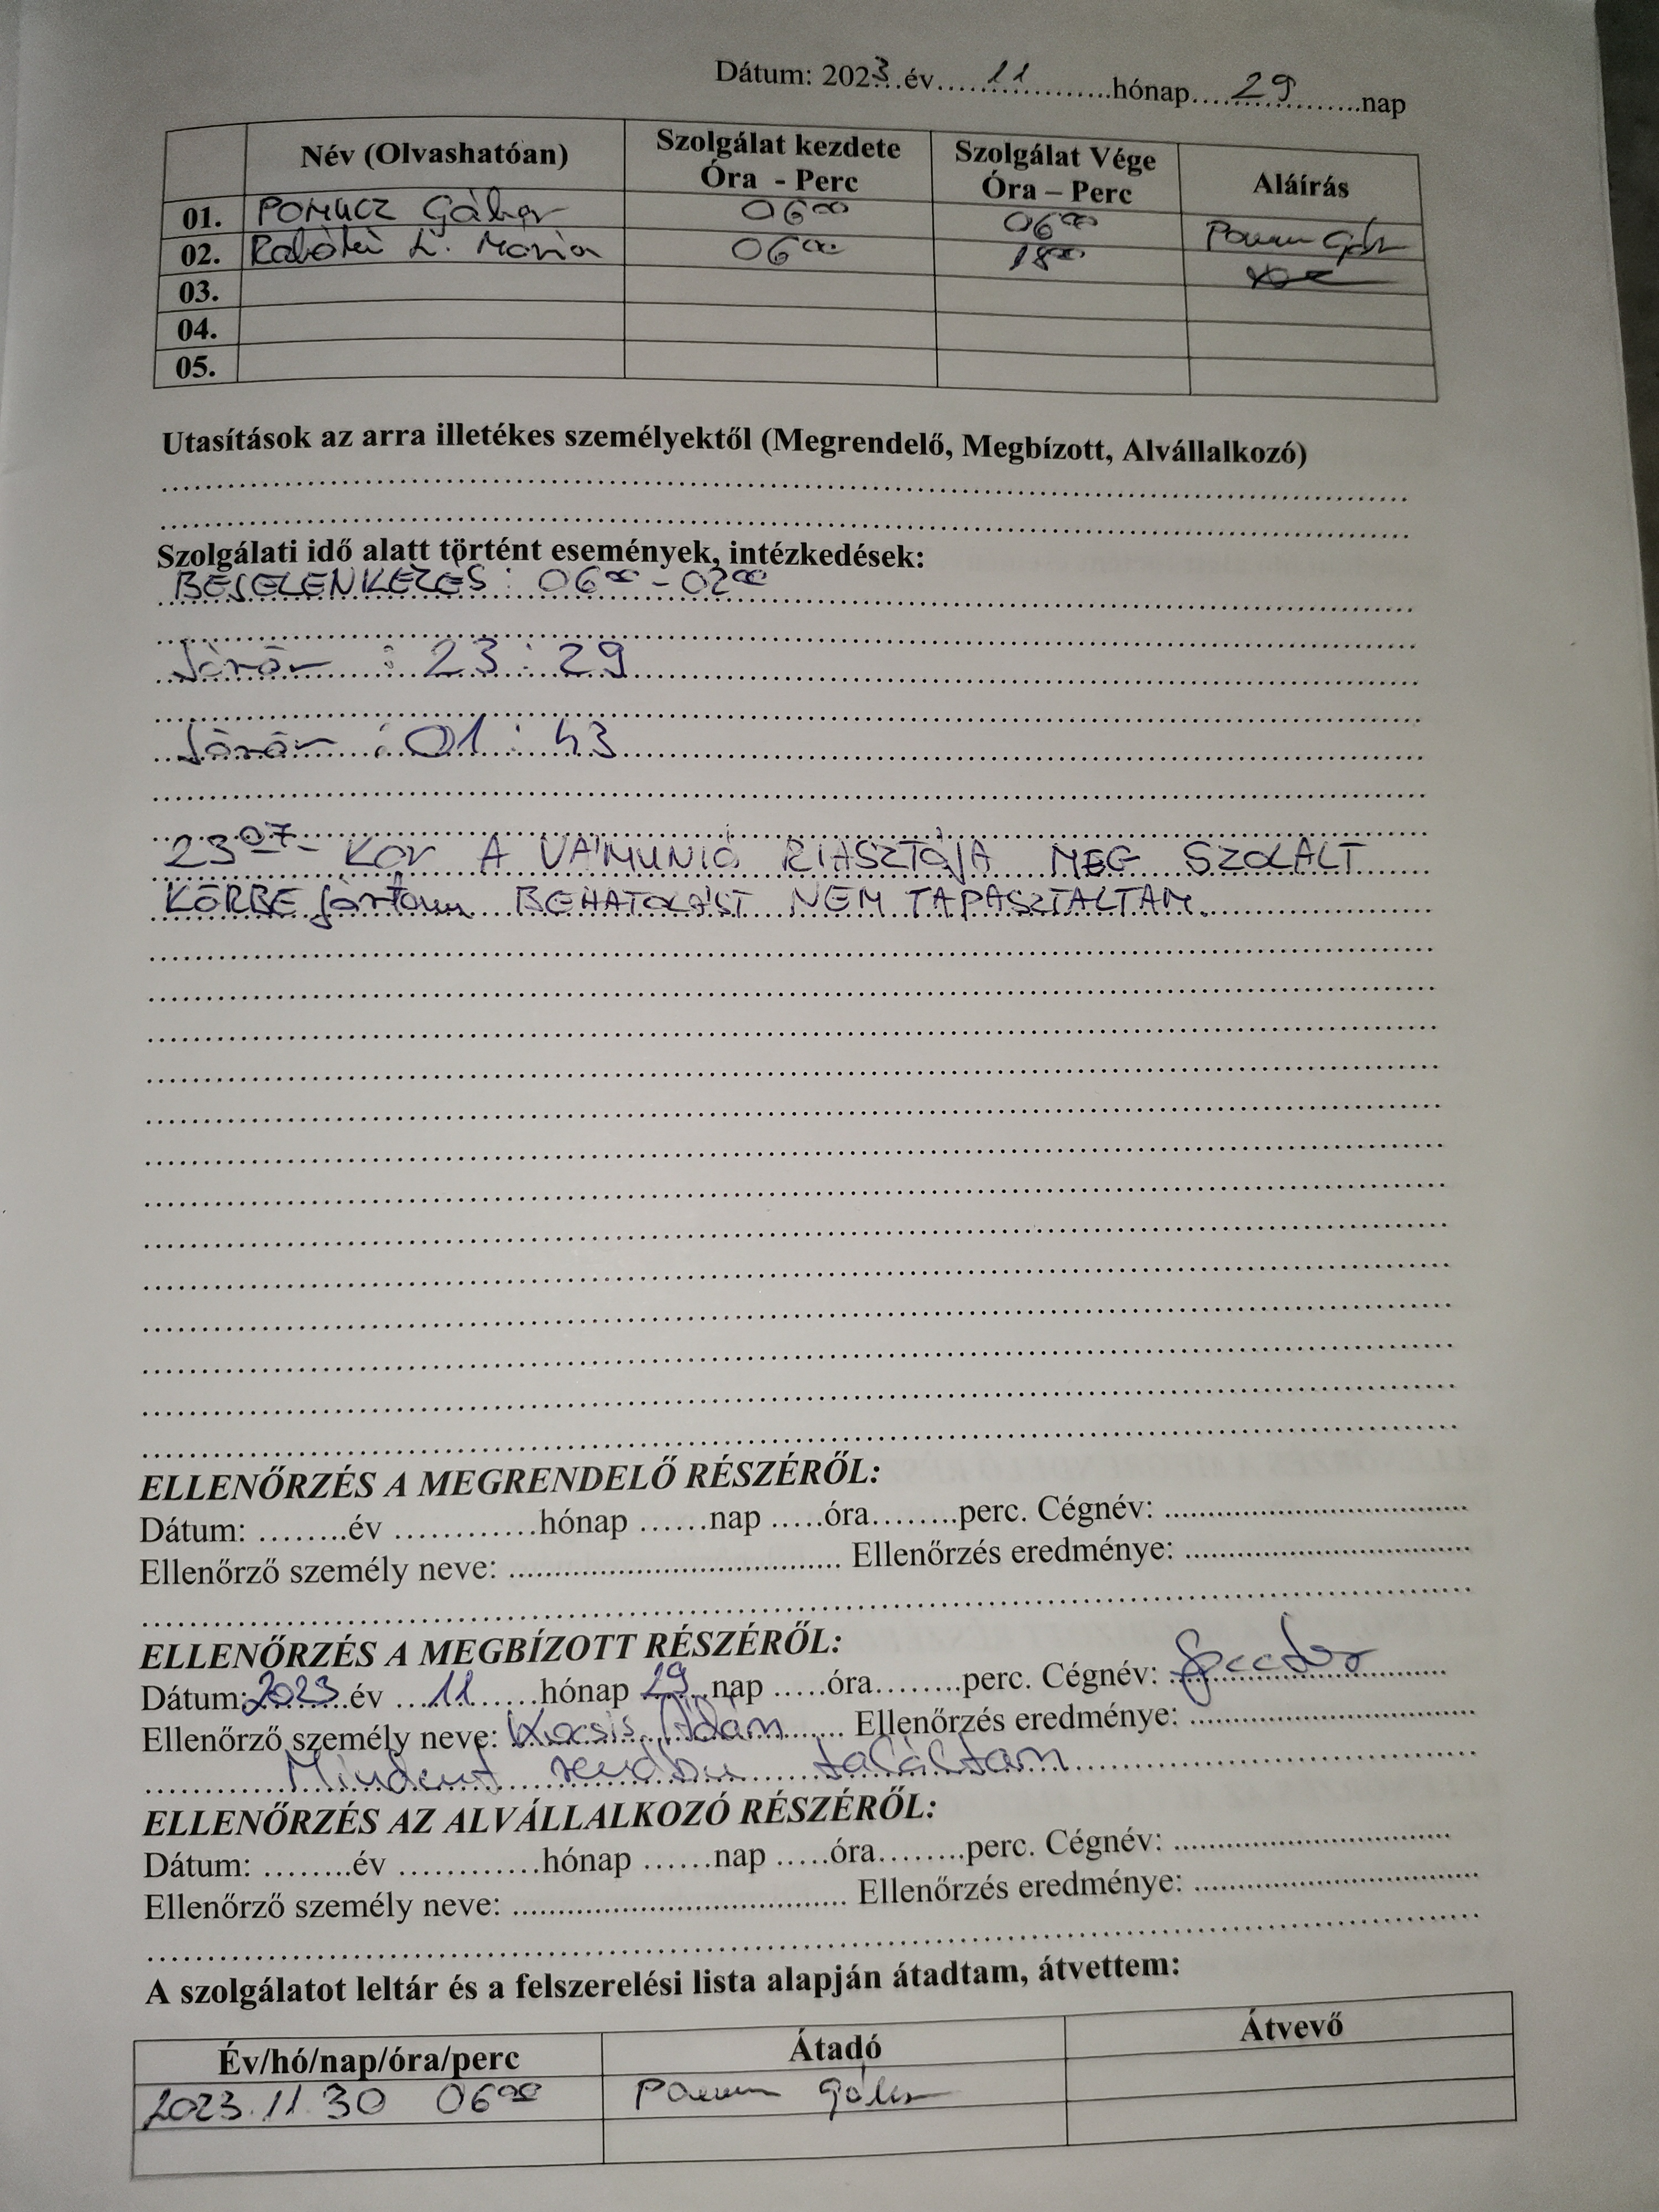 Dátum: 2023...év......11......hónap....29....nap
Név (Olvashatóan) Szolgálat kezdete Óra - Perc Szolgálat Vége Óra – Perc Aláírás
01. POMUCZ Gábor 06⁰⁰ 06⁰⁰
02. L. Mária 06⁰⁰ 18⁰⁰
03.
04.
05.
Utasítások az arra illetékes személyektől (Megrendelő, Megbízott, Alvállalkozó)
Szolgálati idő alatt történt események, intézkedések:
BEJELENKEZÉS : 06⁰⁰ - 02⁰⁰
Járőr : 23 : 29
Járőr : 01 : 43
23⁰⁷- KOR A VÁMUNIÓ RIASZTÓJA MEG SZOLALT
KÖRBE jártam BEHATOLÁST NEM TAPASZTALTAM.
ELLENŐRZÉS A MEGRENDELŐ RÉSZÉRŐL:
Dátum: ........év ............hónap ......nap .....óra........perc. Cégnév: ....................
Ellenőrző személy neve: .................... Ellenőrzés eredménye: ....................
ELLENŐRZÉS A MEGBÍZOTT RÉSZÉRŐL:
Dátum: 2023 év ...11......hónap 29 nap .....óra........perc. Cégnév:
Ellenőrző személy neve: Kocsis Ádám Ellenőrzés eredménye: ....................
Mindent rendben találtam
ELLENŐRZÉS AZ ALVÁLLALKOZÓ RÉSZÉRŐL:
Dátum: ........év ............hónap ......nap .....óra........perc. Cégnév: ....................
Ellenőrző személy neve: .................... Ellenőrzés eredménye: ....................
A szolgálatot leltár és a felszerelési lista alapján átadtam, átvettem:
Év/hó/nap/óra/perc Átadó Átvevő
2023.11.30 06⁰⁰ Gábor